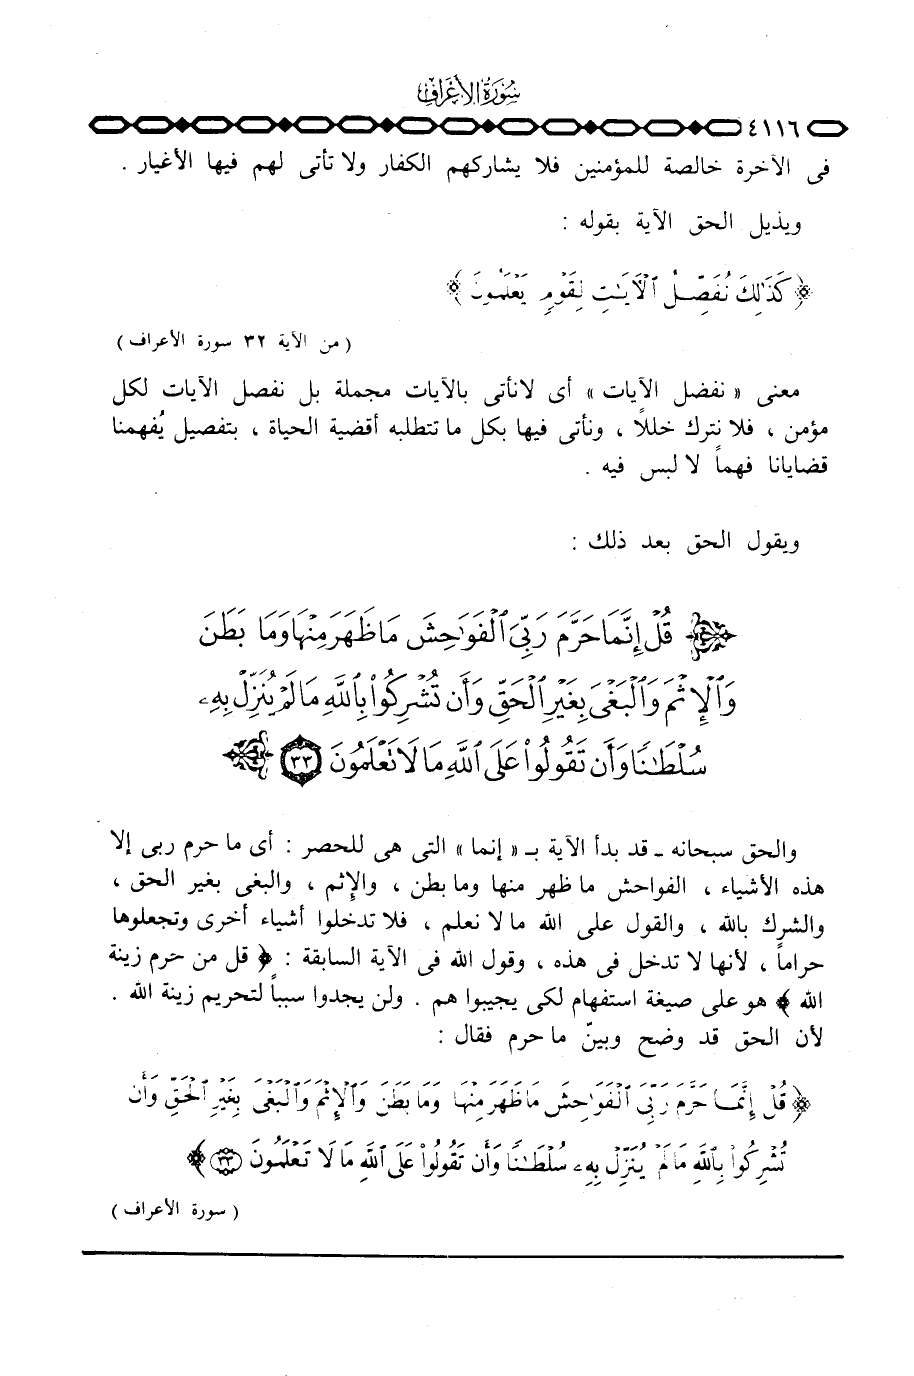 سُورَةُ الأَعْرَافِ
٤١١٦
فى الآخرة خالصة للمؤمنين فلا يشاركهم الكفار ولا تأتى لهم فيها الأغيار .
ويذيل الحق الآية بقوله :
﴿ كَذَٰلِكَ نُفَصِّلُ ٱلْآيَٰتِ لِقَوْمٍ يَعْلَمُونَ ﴾
( من الآية ٣٢ سورة الأعراف )
معنى « نفضل الآيات » أى لا نأتى بالآيات مجملة بل نفصل الآيات لكل
مؤمن ، فلا نترك خللاً ، ونأتى فيها بكل ما تتطلبه أقضية الحياة ، بتفصيل يُفهمنا
قضايانا فهماً لا لبس فيه .
ويقول الحق بعد ذلك :
﴿ قُلْ إِنَّمَا حَرَّمَ رَبِّيَ ٱلْفَوَٰحِشَ مَا ظَهَرَ مِنْهَا وَمَا بَطَنَ
وَٱلْإِثْمَ وَٱلْبَغْىَ بِغَيْرِ ٱلْحَقِّ وَأَن تُشْرِكُوا۟ بِٱللَّهِ مَا لَمْ يُنَزِّلْ بِهِۦ
سُلْطَٰنًا وَأَن تَقُولُوا۟ عَلَى ٱللَّهِ مَا لَا تَعْلَمُونَ ٣٣ ﴾
والحق سبحانه ـ قد بدأ الآية بـ « إنما » التى هى للحصر : أى ما حرم ربى إلا
هذه الأشياء ، الفواحش ما ظهر منها وما بطن ، والإثم ، والبغى بغير الحق ،
والشرك بالله ، والقول على الله ما لا نعلم ، فلا تدخلوا أشياء أخرى وتجعلوها
حراماً ، لأنها لا تدخل فى هذه ، وقول الله فى الآية السابقة : ﴿ قل من حرم زينة
الله ﴾ هو على صيغة استفهام لكى يجيبوا هم . ولن يجدوا سبباً لتحريم زينة الله .
لأن الحق قد وضح وبينّ ما حرم فقال :
﴿ قُلْ إِنَّمَا حَرَّمَ رَبِّىَ ٱلْفَوَٰحِشَ مَا ظَهَرَ مِنْهَا وَمَا بَطَنَ وَٱلْإِثْمَ وَٱلْبَغْىَ بِغَيْرِ ٱلْحَقِّ وَأَن
تُشْرِكُوا۟ بِٱللَّهِ مَا لَمْ يُنَزِّلْ بِهِۦ سُلْطَٰنًا وَأَن تَقُولُوا۟ عَلَى ٱللَّهِ مَا لَا تَعْلَمُونَ ٣٣ ﴾
( سورة الأعراف )